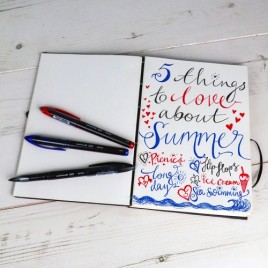 5 things
to love
about
Summer
Picnics Flip flops
long days ice cream
Sea Swimming